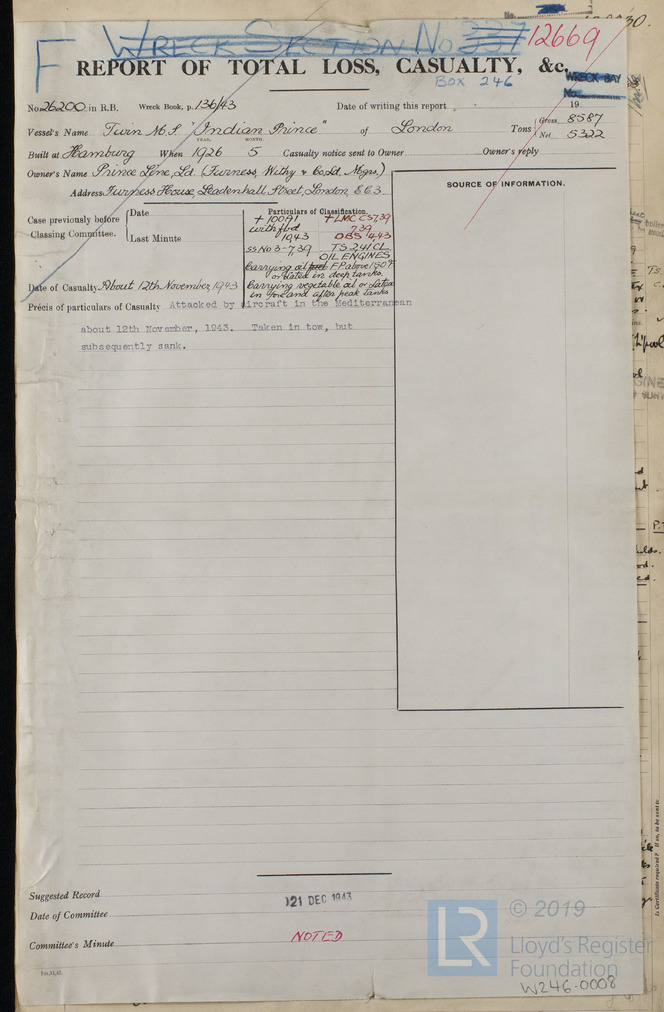 F WRECK SECTION No 337 12669
REPORT OF TOTAL LOSS, CASUALTY, &c.
BOX 246
WRECK BAY
No.
No. 26200 in R.B. Wreck Book, p. 136/43 Date of writing this report 19
Vessel's Name Twin M S. "Indian Prince" of London Tons { Gross 8587
Net 5322
YEAR. MONTH.
Built at Hamburg When 1926 5 Casualty notice sent to Owner Owner's reply
Owner's Name Prince Line, Ld. (Furness, Withy & Co, Ld, Mgrs.)
Address Furness House, Leadenhall Street, London, E.C.3.
SOURCE OF INFORMATION.
Case previously before Classing Committee. { Date
Last Minute
Particulars of Classification.
+ 100A1 + LMC CS 7,39
with fbd 7,39
1943 DBS 4,43
SS No 3 - 7,39 TS 241 CL
OIL ENGINES
Carrying oil fuel F.P. above 150°F
or Latex in deep tanks
Carrying vegetable oil or Latex
in fore and after peak tanks
Date of Casualty About 12th November, 1943
Précis of particulars of Casualty Attacked by aircraft in the Mediterranean
about 12th November, 1943. Taken in tow, but
subsequently sank.
Suggested Record
21 DEC 1943
Date of Committee
Committee's Minute NOTED
LR © 2019
Lloyd's Register
Foundation
W246-0008